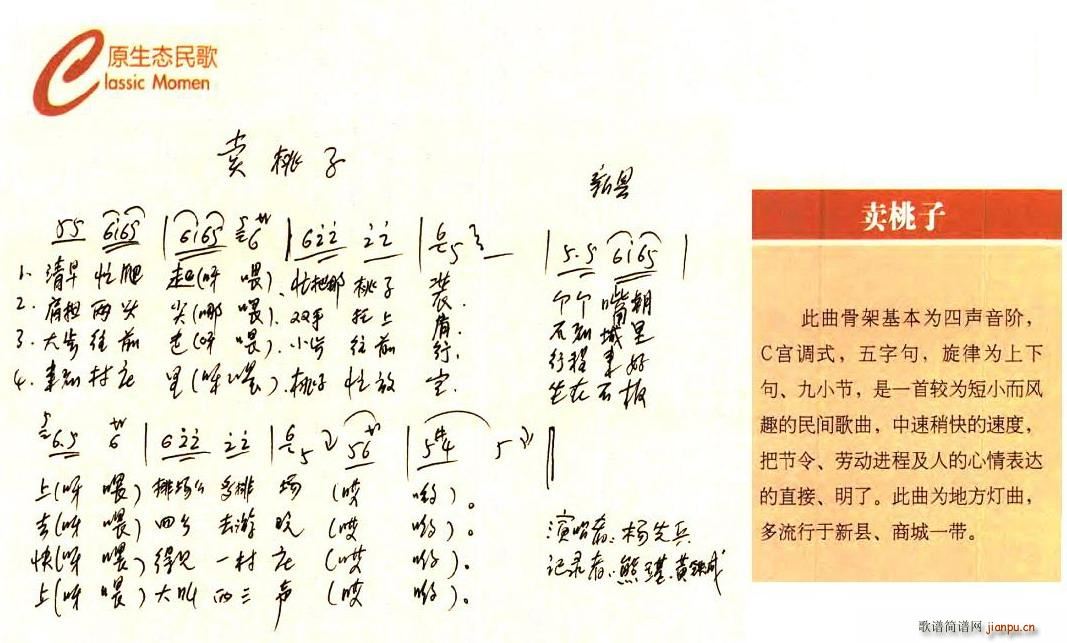 原生态民歌
Classic Momen
卖桃子
新县
5 5 6i65 | 6i65 6 | 6 2 2 2 2 | 6 5 3 | 5. 5 6i65 |
1. 清早忙爬起(呀喂)、忙把那桃子装. 个个嘴朝
2. 肩担两头尖(哪喂)、双手托上肩. 不知城里
3. 大步往前走(呀喂)、小步往前行. 行程来好
4. 来到村庄里(呀喂)、桃子忙放定. 坐在石板
6. 5 6 | 6 2 2 2 2 | 6 5 | 5 6 | 5 #4 5 ‖
上(呀喂)排场多排场(哎哟)。
去(呀喂)四乡去游玩(哎哟)。
快(呀喂)得见一村庄(哎哟)。
上(呀喂)大叫两三声(哎哟)。
演唱者:杨先兵
记录者:熊瑾、黄铁成
卖桃子
此曲骨架基本为四声音阶，
C宫调式，五字句，旋律为上下
句、九小节，是一首较为短小而风
趣的民间歌曲，中速稍快的速度，
把节令、劳动进程及人的心情表达
的直接、明了。此曲为地方灯曲，
多流行于新县、商城一带。
歌谱简谱网 jianpu.cn